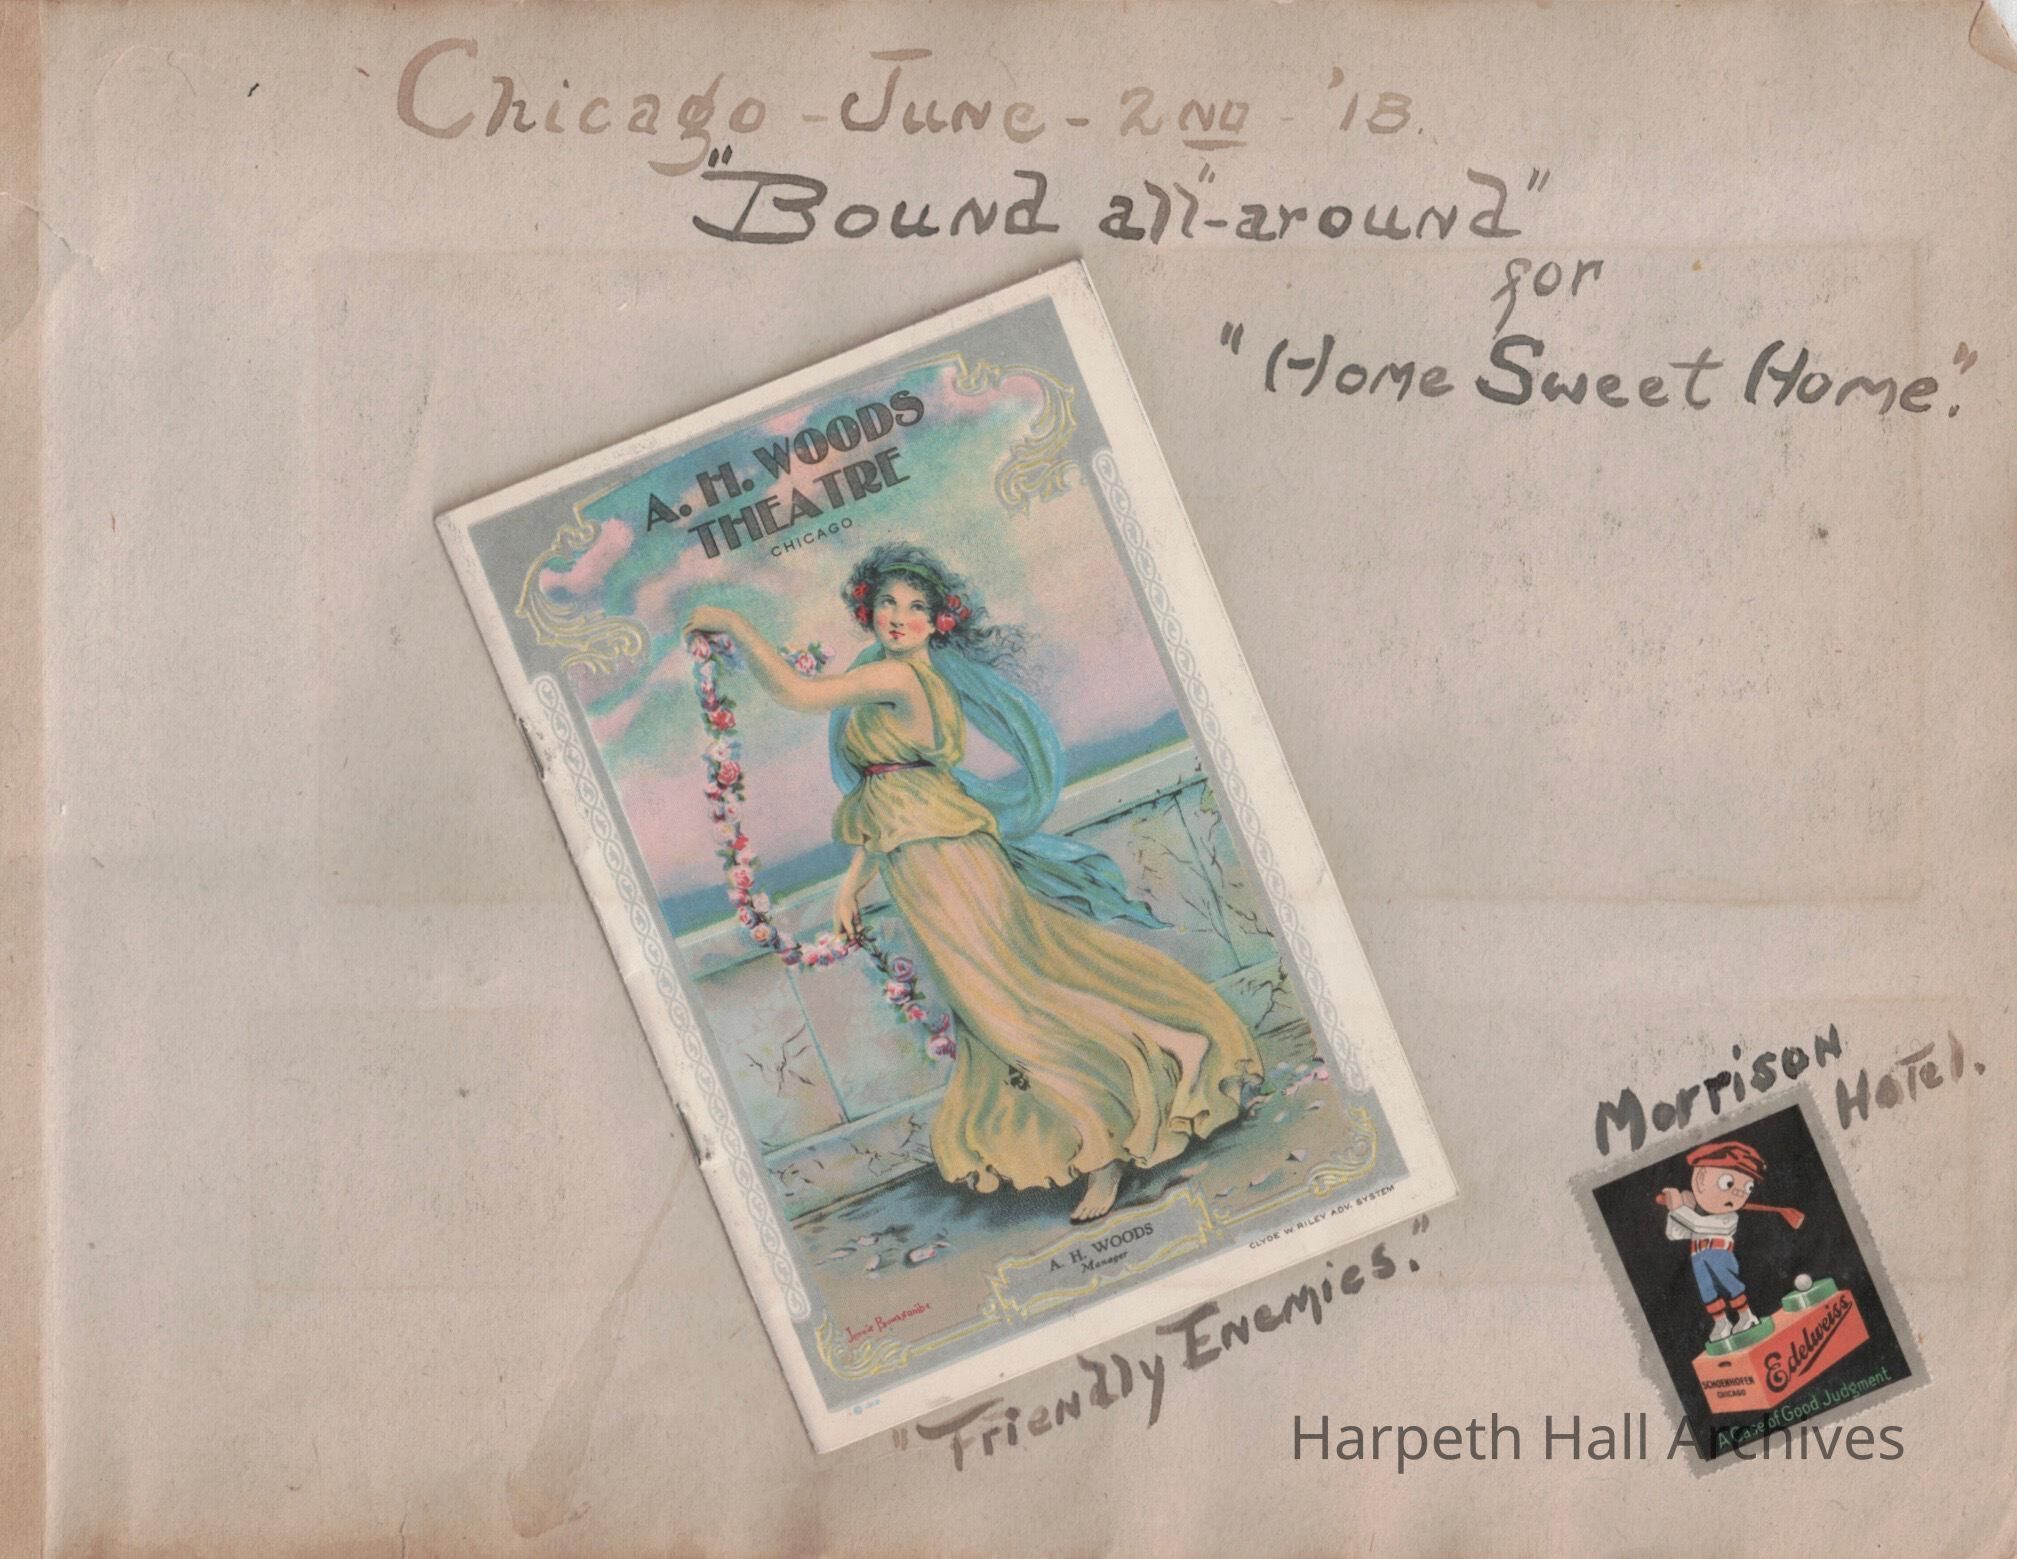 Chicago - June - 2ND - '18.
"Bound all"-around"
for
"Home Sweet Home."
A. H. WOODS
THEATRE
CHICAGO
A. H. WOODS
Manager
CLYDE W. RILEY ADV. SYSTEM
Jennie Brownscombe
"Friendly Enemies."
Morrison
Hotel.
Edelweiss
SCHOENHOFEN
CHICAGO
A Case of Good Judgment
Harpeth Hall Archives